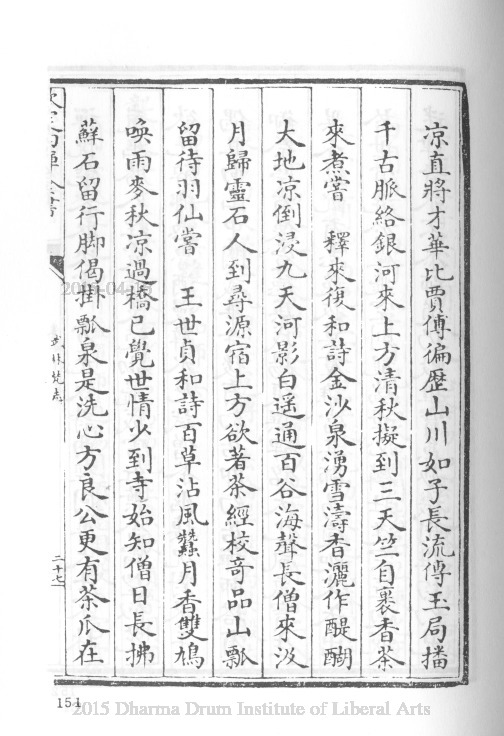 凉直將才華比賈傅徧歷山川如子長流傳玉局播
千古脈絡銀河來上方清秋擬到三天竺自裹香茶
來煮嘗　釋來復和詩金沙泉湧雪濤香灑作醍醐
大地凉倒浸九天河影白遥通百谷海聲長僧來汲
月歸靈石人到尋源宿上方欲著茶經校奇品山瓢
留待羽仙嘗　王世貞和詩百草沾風蠶月香雙鳩
喚雨麥秋凉過橋已覺世情少到寺始知僧日長拂
蘇石留行脚偈掛瓢泉是洗心方良公更有茶瓜在
武林梵志
二十七
154
2015 Dharma Drum Institute of Liberal Arts